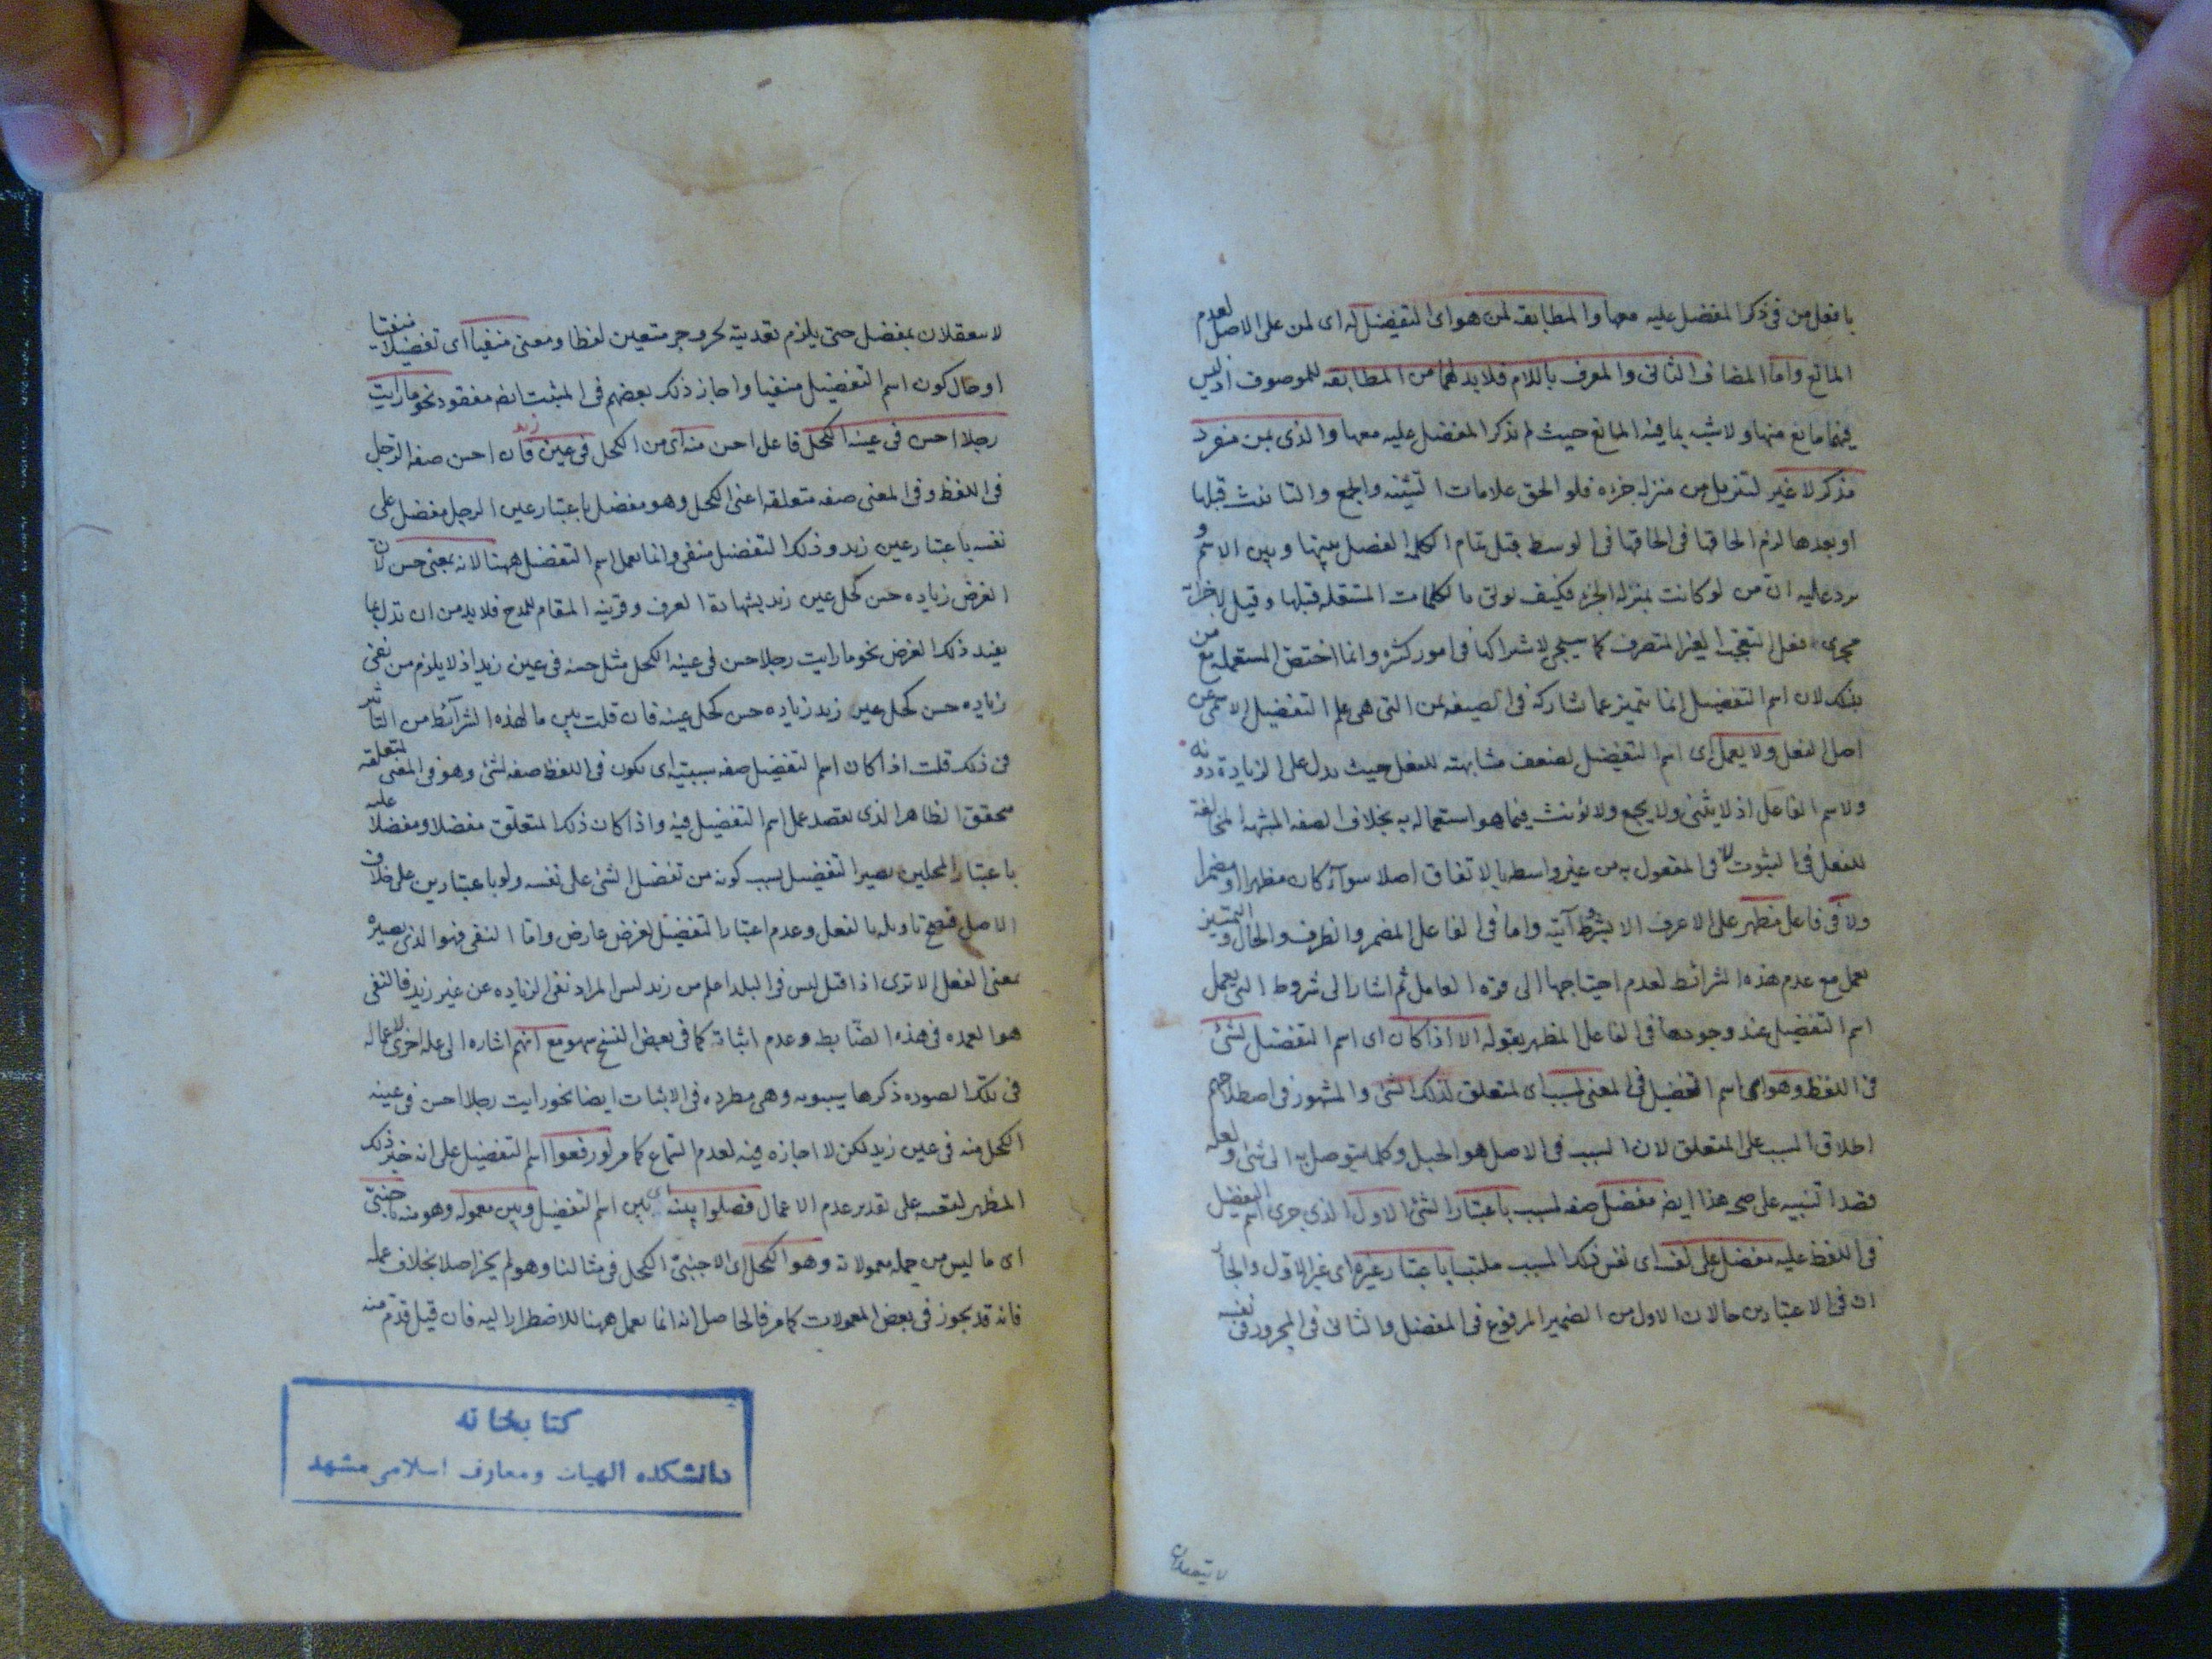 بافعل من فی ذکر المفضل علیه معها والمطابقه لمن هو ای التفضیل له ای لمن علی الاصل لعدم
المانع واما المضاف الثانی والمعرف باللام فلا بد لهما من المطابقه للموصوف اذ لیس
فیهما مانع منها ولا شبه بما فیه المانع حیث لم یذکر المفضل علیه معها والذی بمن مفرد
مذکر لا غیر لتنزیل من منزله جزءه فلو الحق علامات التثنیه والجمع والتانیث قبلها
او بعدها لزم الحاقها فی الوسط قبل تمام الکلمه الفصل بینها وبین الاسم و
یرد علیه ان من لو کانت بمنزله الجزء فکیف یؤتی بالکلمات المستقله قبلها وقیل لاجرائه
مجری فعل التعجب الغیر المتصرف کما سیجیء لاشتراکهما فی امور کثیره وانما اختص المستعمل مع من
بذلک لان اسم التفضیل انما یتمیز عما شارکه فی الصیغه بمن التی هی علم التفضیل
اصل الفعل ولا یعمل ای اسم التفضیل لضعف مشابهته للفعل حیث یدل علی الزیادة دونه
ولاسم الفاعل اذ لا یثنی ولا یجمع ولا یؤنث فیما هو استعماله به بخلاف الصفه المشبهه المخالفة
للفعل فی الثبوت لا فی المفعول به من غیر واسطه بالاتفاق اصلا سوآء کان مظهرا او مضمرا
ولا فی فاعل مظهر علی الاعرف الا بشروط آتیه واما فی الفاعل المضمر والظرف والحال والتمییز
یعمل مع عدم هذه الشرائط لعدم احتیاجها الی قوة العامل ثم اشار الی شروط التی یعمل
اسم التفضیل عند وجودها فی الفاعل المظهر بقوله الا اذا کان ای اسم التفضیل لشئ
فی اللفظ وهو ای اسم التفضیل فی المعنی لمسبب ای لمتعلق لذلک الشئ والمشهور فی اصطلاحهم
اطلاق السبب علی المتعلق لان السبب فی الاصل هو الحبل وکلما یتوصل به الی شئ ولعله
قصد التنبیه علی صحه هذا ایضا مفضل صفه لمسبب باعتبار الشئ الاول الذی جری اسم التفضیل
فی اللفظ علیه مفضل علی نفسه ای نفس ذلک المسبب ملتبسا باعتبار غیره ای غیر الاول والجار
ان فی الاعتبارین حالان الاول من الضمیر المرفوع فی المفضل والثانی فی المجرور فی نفسه
لا یتعلقان
لا یتعلقان بمفضل حتی یلزم تعدیته بحروف جر متعین لفظا ومعنی منفیا ای تفضیلا منفیا
او حال کون اسم التفضیل منفیا واجاز ذلک بعضهم فی المثبت ایضا مفقود نحو ما رایت
رجلا احسن فی عینه الکحل فاعل احسن منه ای من الکحل فی عین زید فان احسن صفه الرجل
فی اللفظ وفی المعنی صفه متعلقه اعنی الکحل وهو مفضل باعتبار عین الرجل مفضل علی
نفسه باعتبار عین زید وذلک التفضیل منفی وانما یعمل اسم التفضیل ههنا لانه بمعنی حسن لان
الغرض زیاده حسن کحل عین زید بشهادة العرف وقرینه المقام للمدح فلا بد من ان تدل بما
یفید ذلک الغرض نحو ما رایت رجلا حسن فی عینه الکحل مثل حسنه فی عین زید اذ لا یلزم من نفی
زیاده حسن کحل عین زید زیاده حسن کحل عینه فان قلت بین ما لهذه الشرآئط من التاثیر
فی ذلک قلت اذا کان اسم التفضیل صفه سببیه ای یکون فی اللفظ صفه لشئ وهو فی المعنی لمتعلقه
محقق الظاهر الذی یقصد عمل اسم التفضیل فیه واذا کان ذلک المتعلق مفضلا ومفضلا علیه
باعتبار المحلین یصیر التفضیل بسبب کونه من تفضیل الشئ علی نفسه ولو باعتبارین علی خلاف
الاصل فصح تاویله بالفعل وعدم اعتبار التفضیل لغرض عارض واما النفی فهو الذی یصیره
بمعنی الفعل الا تری اذا قیل لیس فی البلد اعلم من زید لیس المراد نفی الزیاده عن غیر زید فالنفی
هو العمده فی هذه الضابط وعدم اثباته کما فی بعض النسخ سهو مع انهم اشاره الی علة اخری للاعماله
فی تلک الصوره ذکرها سیبویه وهی مطرده فی الاثبات ایضا نحو رایت رجلا احسن فی عینه
الکحل منه فی عین زید لکن لا اجازه فیه لعدم السماع کما مر لو رفعوا اسم التفضیل علی انه خبر ذلک
المظهر لنفسه علی تقدیر عدم الاعمال فصلوا بینه ای بین اسم التفضیل وبین معموله وهو منه باجنبی
ای ما لیس من جمله معمولاته وهو الکحل ای الاجنبی الکحل فی مثالنا وهو لم یجز اصلا بخلاف عمله
فانه قد یجوز فی بعض المعمولات کما مر فالحاصل انه انما یعمل ههنا للاضطرار الیه فان قیل قدم منه
کتابخانه
دانشکده الهیات ومعارف اسلامی مشهد